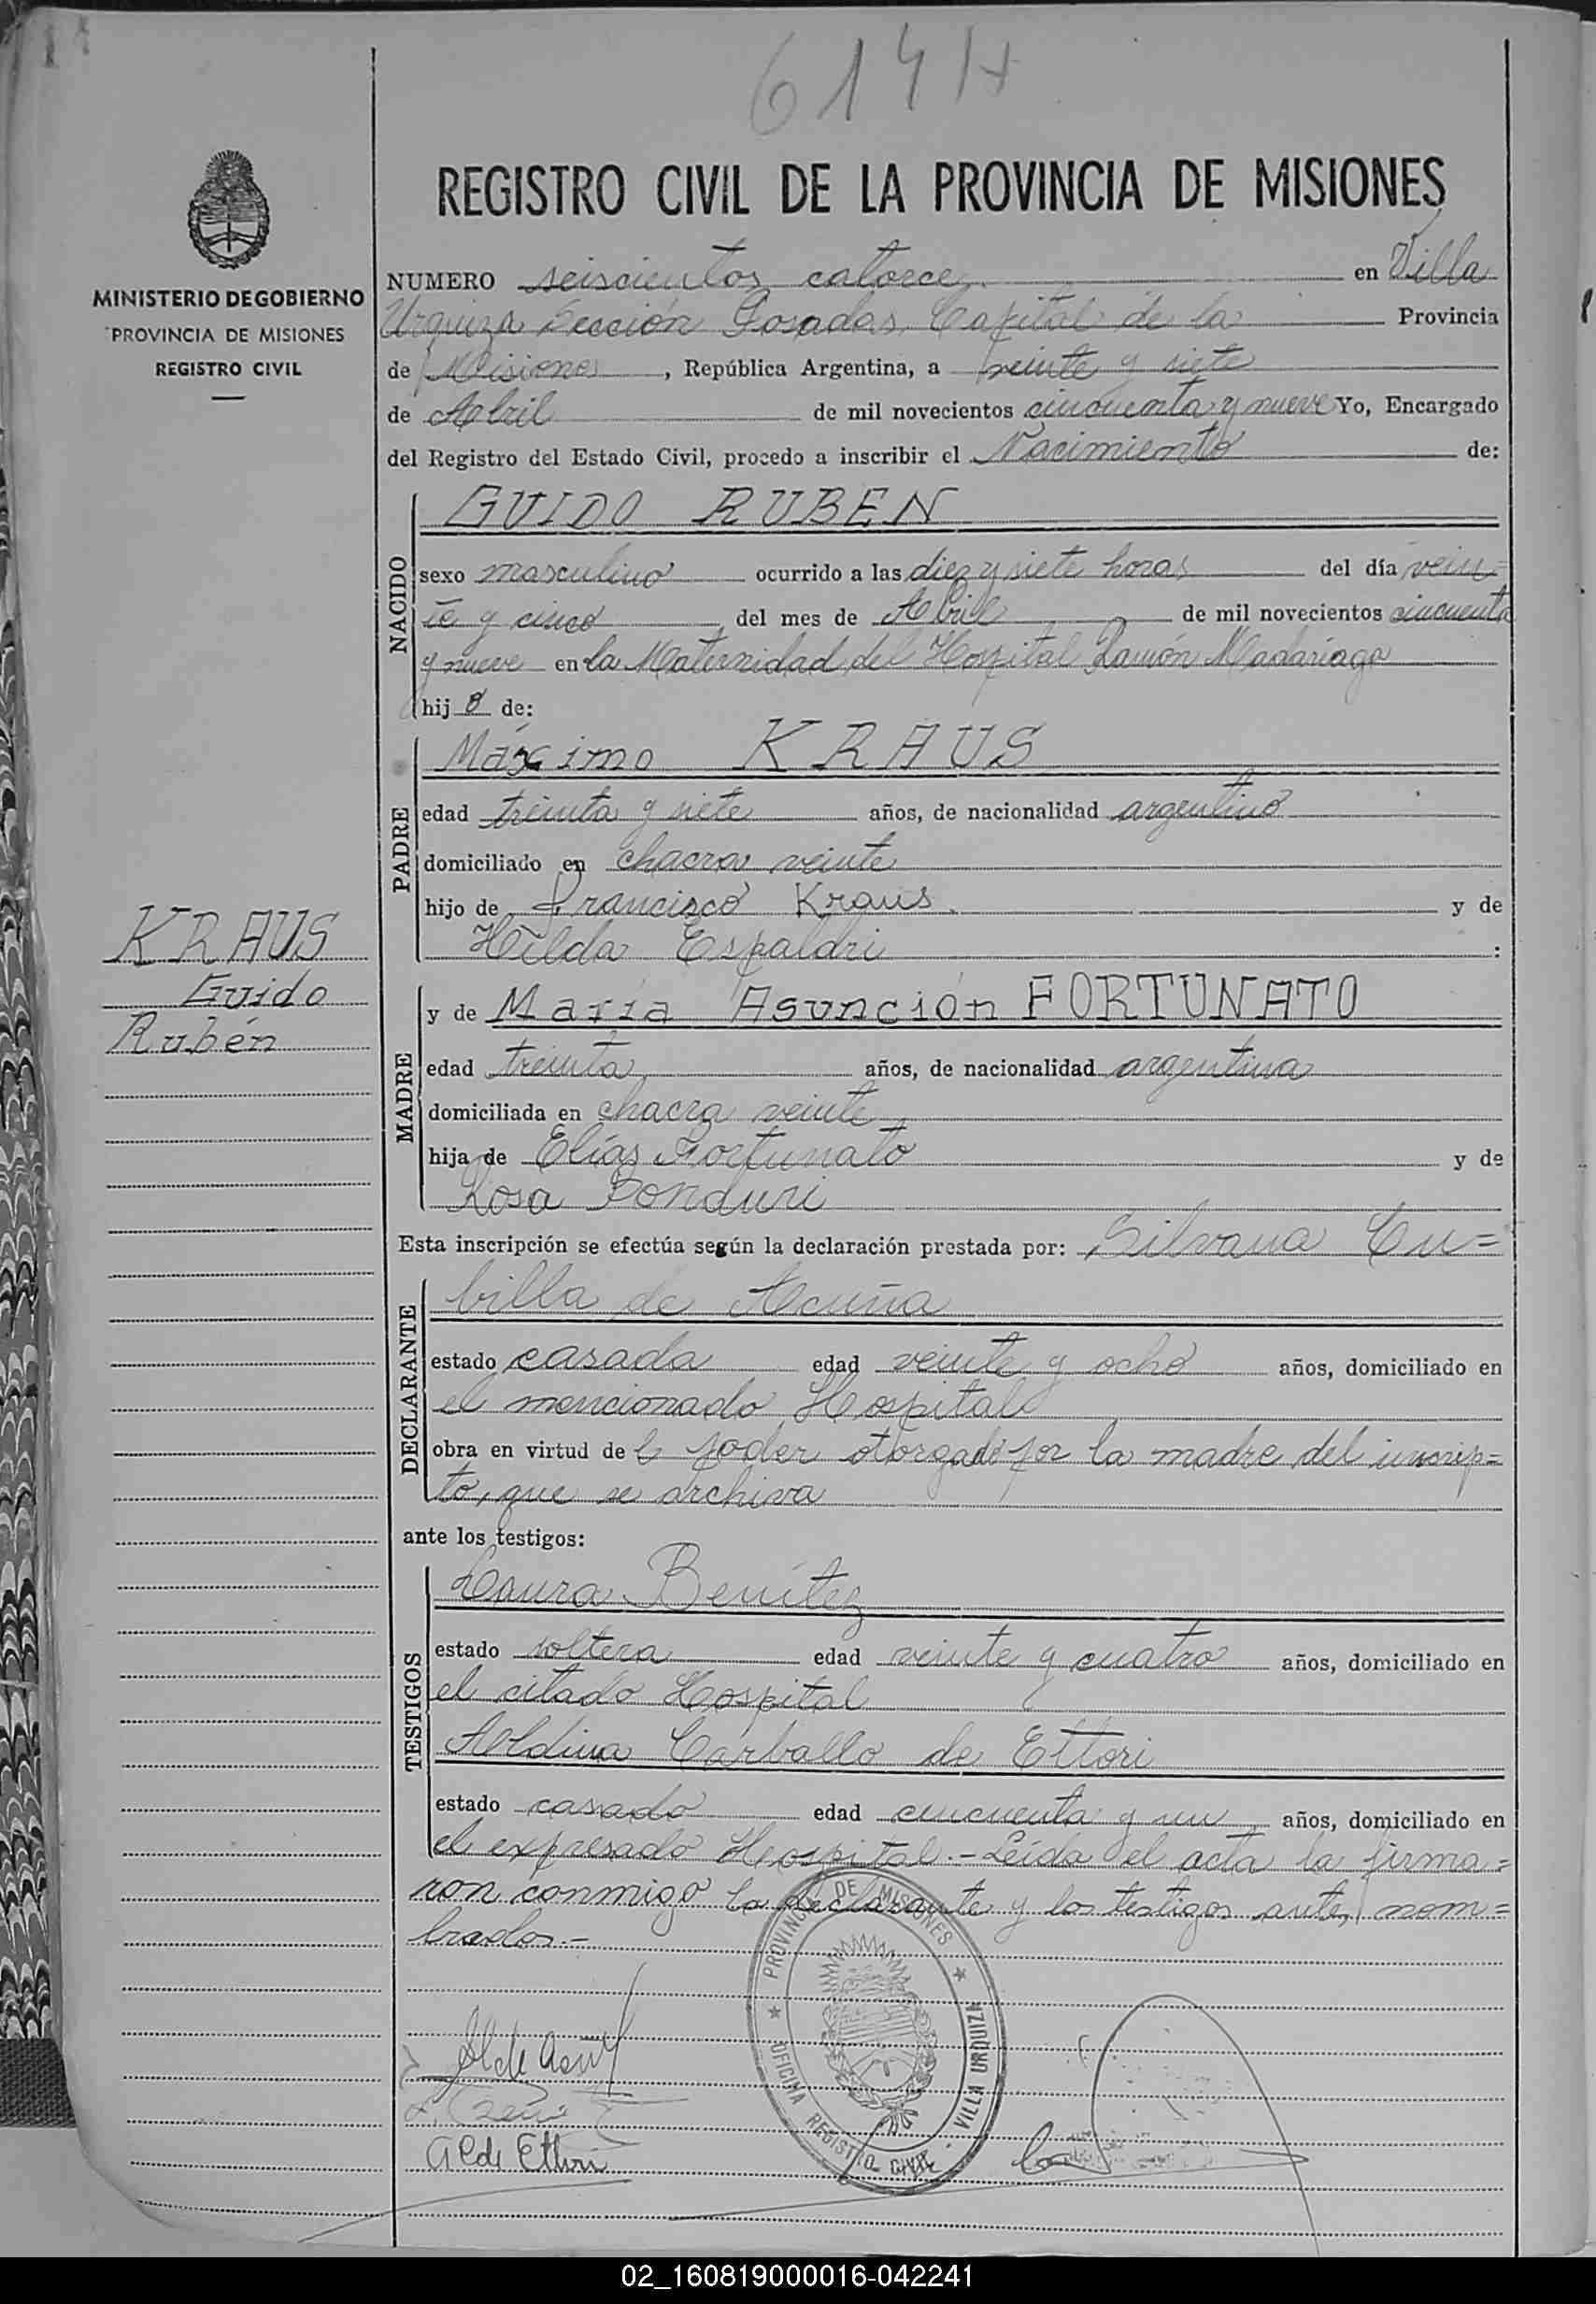 614 H
REGISTRO CIVIL DE LA PROVINCIA DE MISIONES
MINISTERIO DE GOBIERNO
PROVINCIA DE MISIONES
REGISTRO CIVIL
NUMERO seiscientos catorce en Villa
Urquiza Sección Posadas, Capital de la Provincia
de Misiones, República Argentina, a veinte y siete
de Abril de mil novecientos cincuenta y nueve Yo, Encargado
del Registro del Estado Civil, procedo a inscribir el Nacimiento de:
NACIDO
GUIDO RUBEN
sexo masculino ocurrido a las diez y siete horas del día vein-
te y cinco del mes de Abril de mil novecientos cincuenta
y nueve en la Maternidad del Hospital Ramón Madariaga
hij o de:
PADRE
Máximo KRAUS
edad treinta y siete años, de nacionalidad argentino
domiciliado en chacra veinte
hijo de Francisco Kraus. y de
Hilda Espaldri :
KRAUS
Guido
Rubén
MADRE
y de María Asunción FORTUNATO
edad treinta años, de nacionalidad argentina
domiciliada en chacra veinte
hija de Elías Fortunato y de
Rosa Bonduri
Esta inscripción se efectúa según la declaración prestada por: Silvana Cu=
DECLARANTE
billa de Acuña
estado casada edad veinte y ocho años, domiciliado en
el mencionado Hospital
obra en virtud de poder otorgado por la madre del inscrip=
to, que se archiva
ante los testigos:
TESTIGOS
Laura Benítez
estado soltera edad veinte y cuatro años, domiciliado en
el citado Hospital
Aldina Carballo de Ettori
estado casado edad cincuenta y un años, domiciliado en
el expresado Hospital.- Leída el acta la firma=
ron conmigo la declarante y los testigos antes nom=
brados.-
PROVINCIA DE MISIONES
OFICINA REGISTRO CIVIL - VILLA URQUIZA
A. de Ettori
02_160819000016-042241